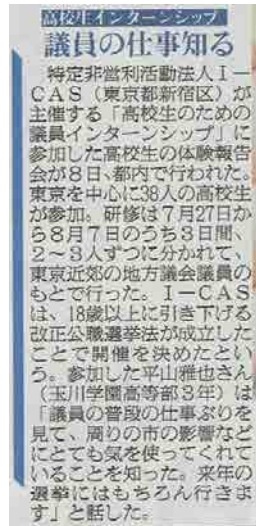 高校生インターンシップ
議員の仕事知る
特定非営利活動法人I－
CAS（東京都新宿区）が
主催する「高校生のための
議員インターンシップ」に
参加した高校生の体験報告
会が8日、都内で行われた。
東京を中心に38人の高校生
が参加。研修は7月27日か
ら8月7日のうち3日間、
2～3人ずつに分かれて、
東京近郊の地方議会議員の
もとで行った。I－CAS
は、18歳以上に引き下げる
改正公職選挙法が成立した
ことで開催を決めたとい
う。参加した平山雅也さん
（玉川学園高等部3年）は
「議員の普段の仕事ぶりを
見て、周りの市の影響など
にとても気を使ってくれて
いることを知った。来年の
選挙にはもちろん行きま
す」と話した。